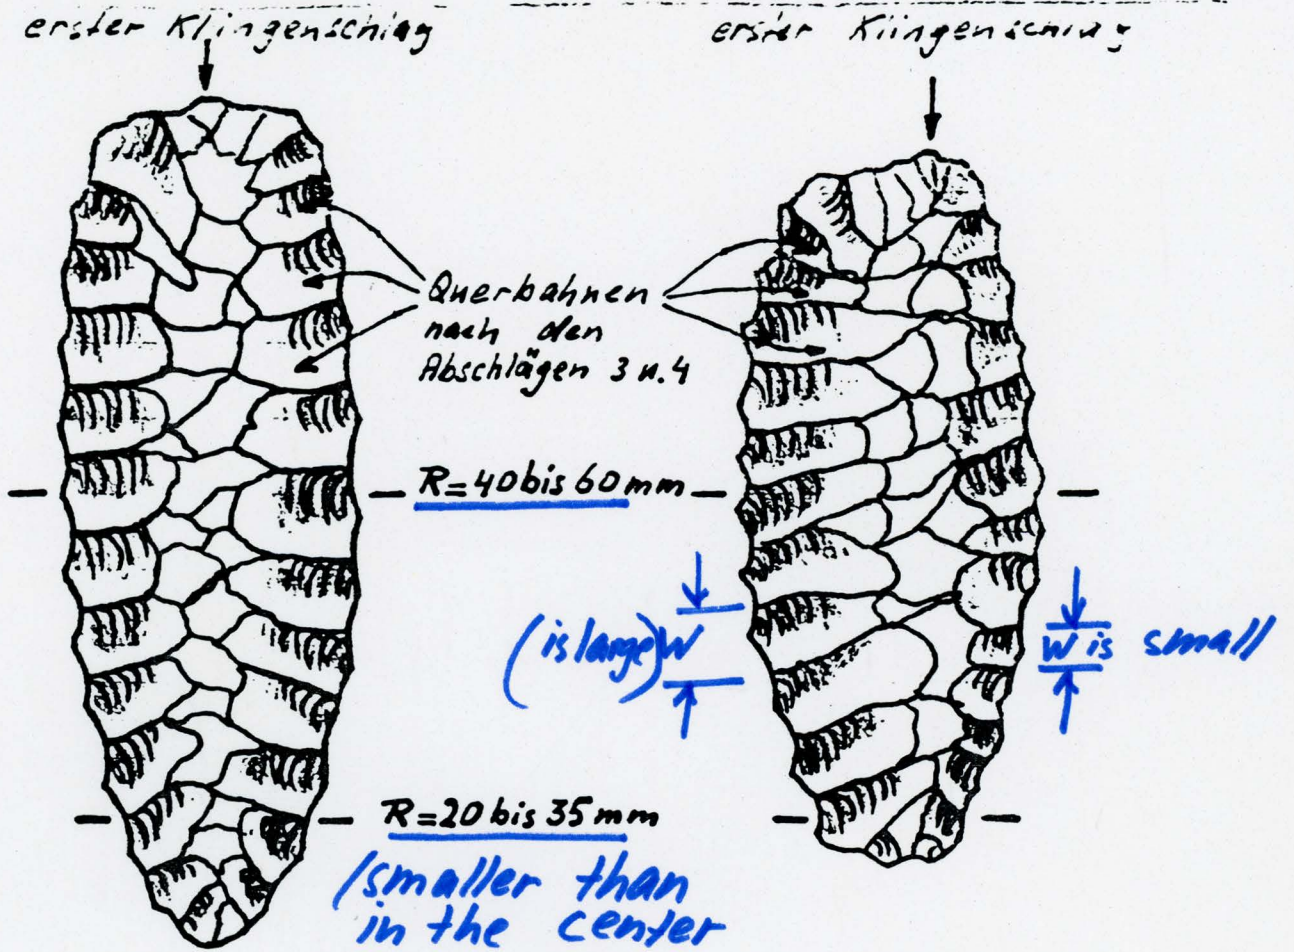 erster Klingenschlag
erster Klingenschlag
Querbahnen
nach den
Abschlägen 3 u. 4
R=40 bis 60 mm
(is large) W
W is small
R=20 bis 35 mm
(smaller than
in the center